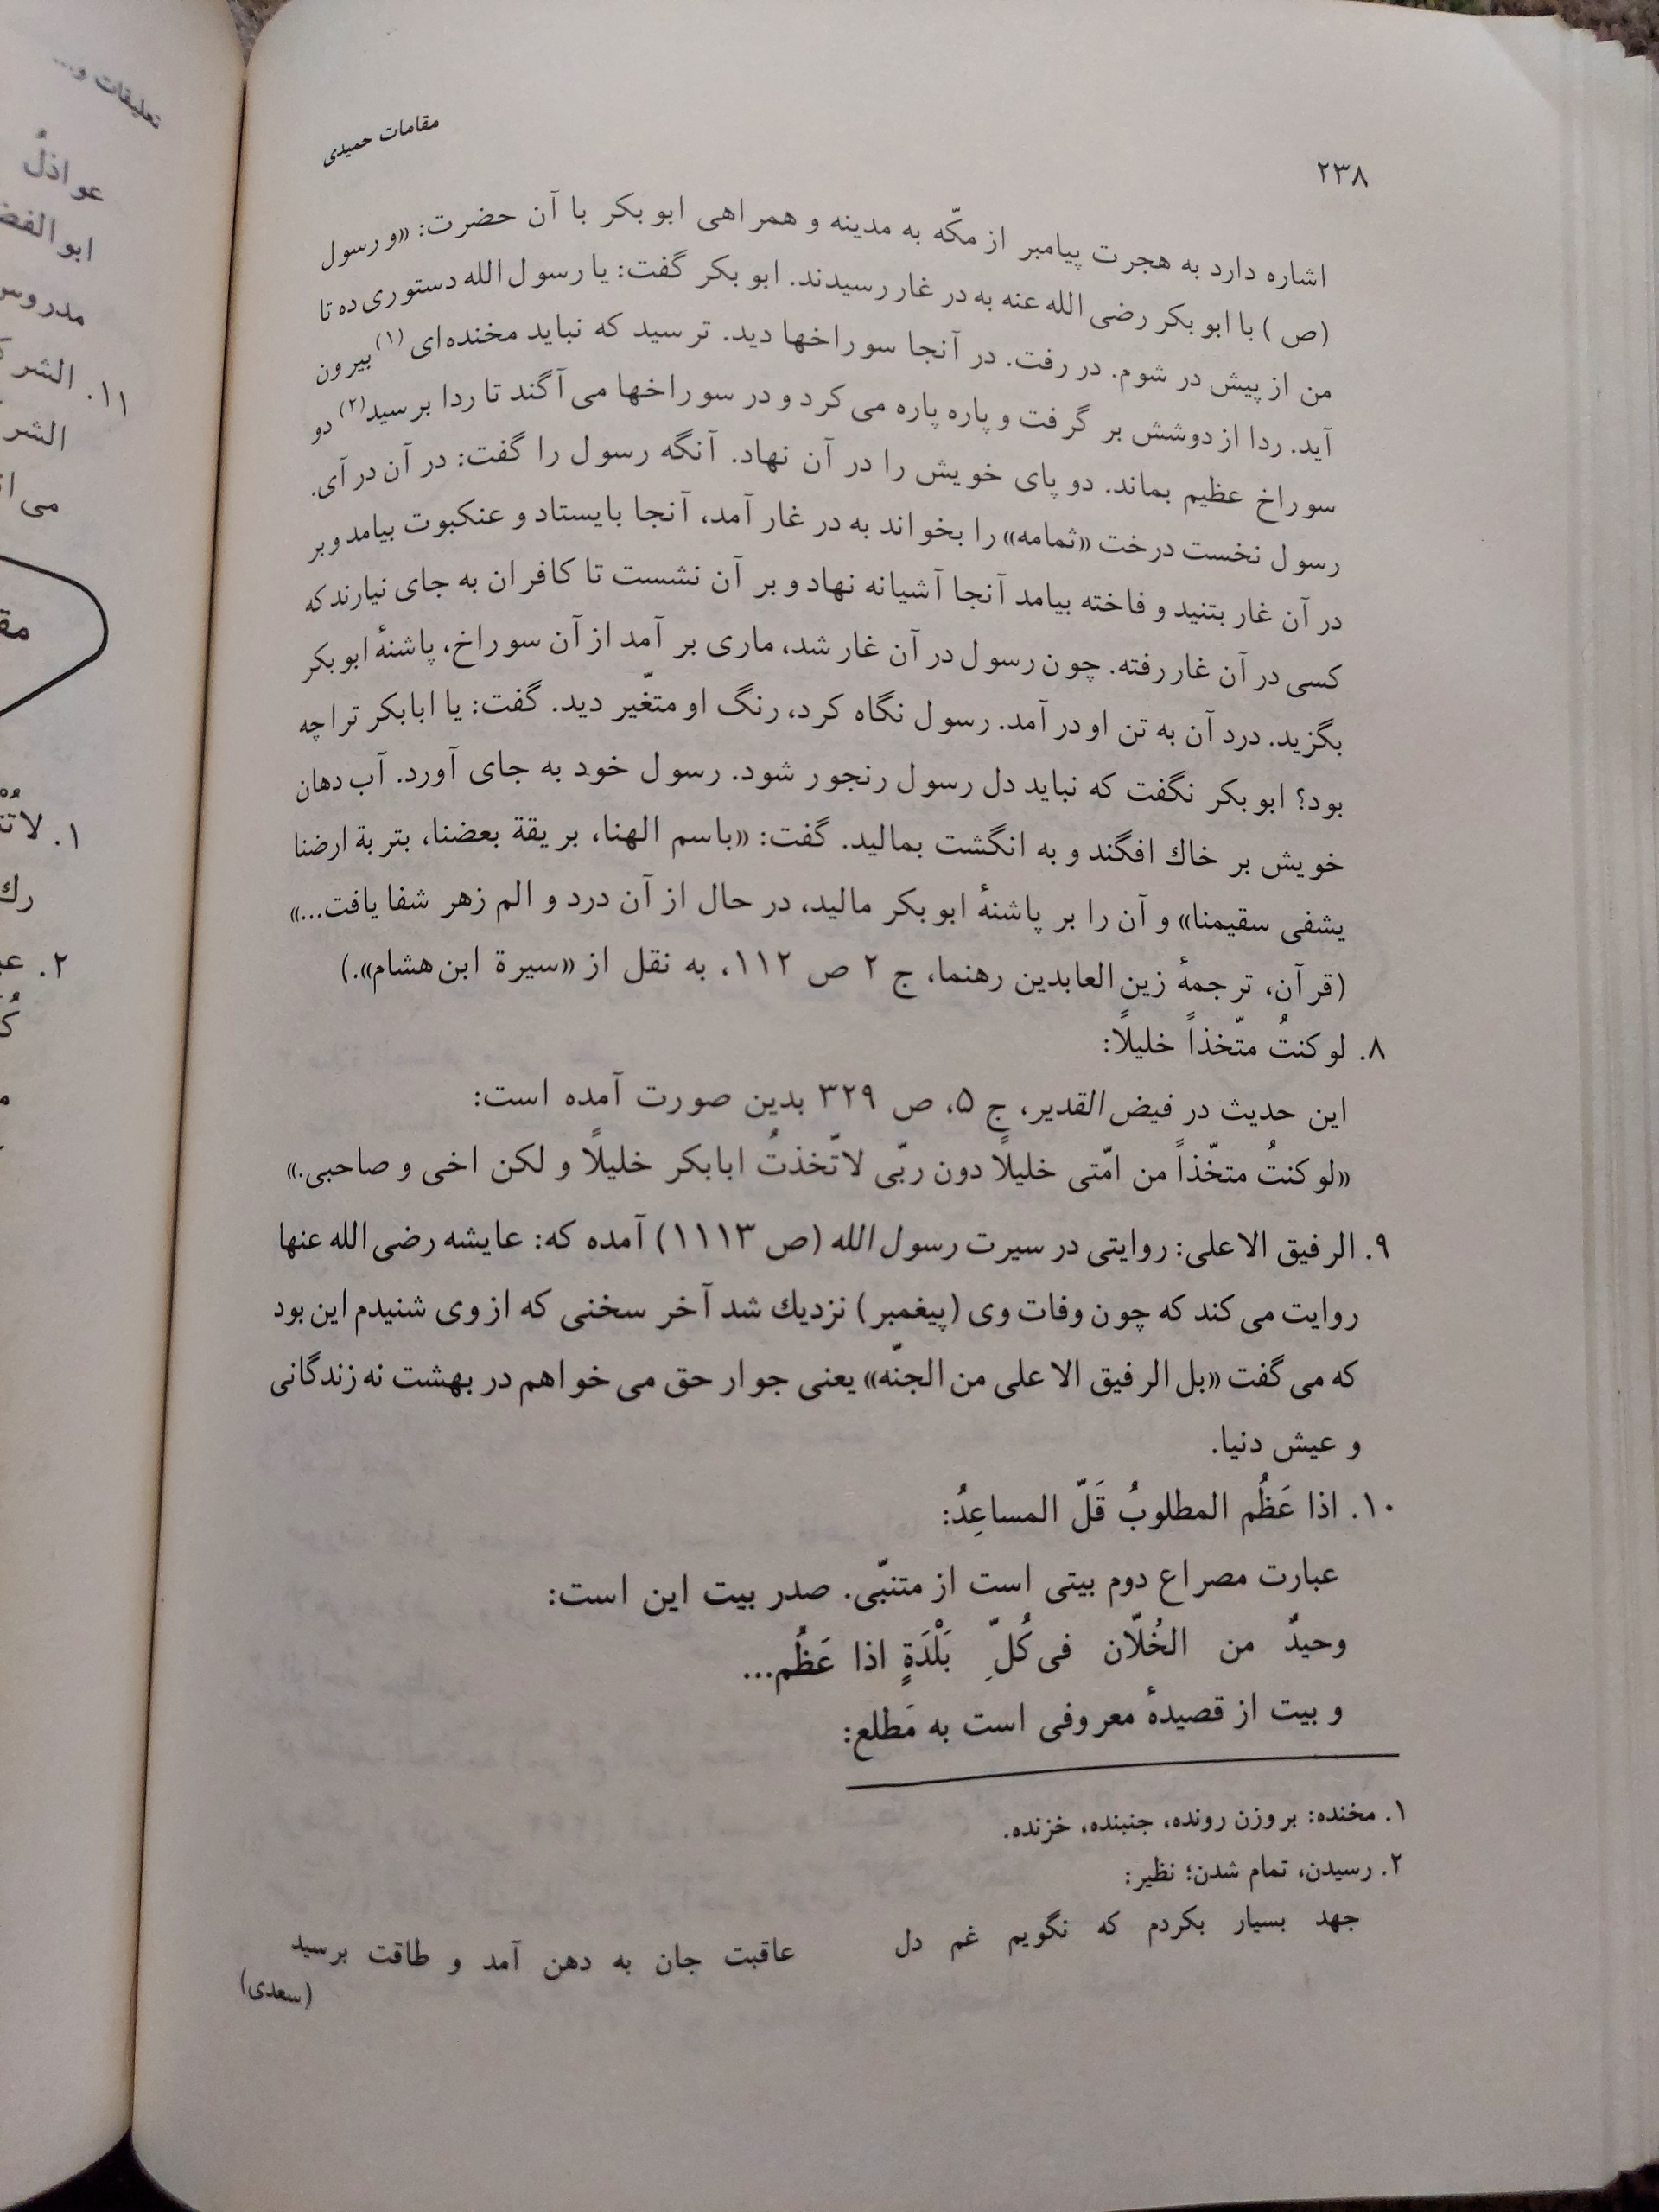 ۲۳۸
مقامات حمیدی
اشاره دارد به هجرت پیامبر از مکّه به مدینه و همراهی ابوبکر با آن حضرت: «و رسول
(ص) با ابوبکر رضی الله عنه به در غار رسیدند. ابوبکر گفت: یا رسول الله دستوری ده تا
من از پیش در شوم. در رفت. در آنجا سوراخها دید. ترسید که نباید مخنده‌ای (۱) بیرون
آید. ردا از دوشش بر گرفت و پاره پاره می‌کرد و در سوراخها می‌آگند تا ردا برسید(۲) دو
سوراخ عظیم بماند. دو پای خویش را در آن نهاد. آنگه رسول را گفت: در آن در آی.
رسول نخست درخت «ثمامه» را بخواند به در غار آمد، آنجا بایستاد و عنکبوت بیامد و بر
در آن غار بتنید و فاخته بیامد آنجا آشیانه نهاد و بر آن نشست تا کافران به جای نیارند که
کسی در آن غار رفته. چون رسول در آن غار شد، ماری بر آمد از آن سوراخ، پاشنهٔ ابوبکر
بگزید. درد آن به تن او در آمد. رسول نگاه کرد، رنگ او متغّیر دید. گفت: یا ابابکر ترا چه
بود؟ ابوبکر نگفت که نباید دل رسول رنجور شود. رسول خود به جای آورد. آب دهان
خویش بر خاك افگند و به انگشت بمالید. گفت: «باسم الهنا، بریقة بعضنا، بتربة ارضنا
یشفی سقیمنا» و آن را بر پاشنهٔ ابوبکر مالید، در حال از آن درد و الم زهر شفا یافت...»
(قرآن، ترجمهٔ زین العابدین رهنما، ج ۲ ص ۱۱۲، به نقل از «سیرة ابن هشام».)
۸. لو کنتُ متّخذاً خلیلاً:
این حدیث در فیض القدیر، ج ۵، ص ۳۲۹ بدین صورت آمده است:
«لو کنتُ متخّذاً من امّتی خلیلاً دون ربّی لاتّخذتُ ابابکر خلیلاً و لکن اخی و صاحبی.»
۹. الرفیق الاعلی: روایتی در سیرت رسول الله (ص ۱۱۱۳) آمده که: عایشه رضی الله عنها
روایت می‌کند که چون وفات وی (پیغمبر) نزدیك شد آخر سخنی که از وی شنیدم این بود
که می‌گفت «بل الرفیق الاعلی من الجنّه» یعنی جوار حق می‌خواهم در بهشت نه زندگانی
و عیش دنیا.
۱۰. اذا عَظُم المطلوبُ قَلّ المساعِدُ:
عبارت مصراع دوم بیتی است از متنبّی. صدر بیت این است:
وحیدٌ من الخُلّان فی کُلِّ بَلْدَةٍ اذا عَظُم...
و بیت از قصیدهٔ معروفی است به مَطلع:
۱. مخنده: بر وزن رونده، جنبنده، خزنده.
۲. رسیدن، تمام شدن؛ نظیر:
جهد بسیار بکردم که نگویم غم دل عاقبت جان به دهن آمد و طاقت برسید
(سعدی)
تعلیقات و...
عواذلُ
مدروس
۱۱. الشر
الشر
۱.
۲.